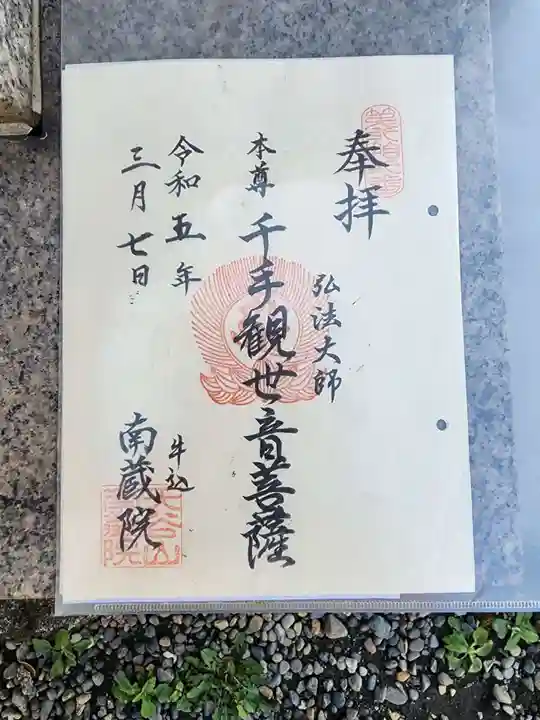 奉拝
弘法大師
本尊 千手観世音菩薩
令和五年
三月七日
牛込
南蔵院